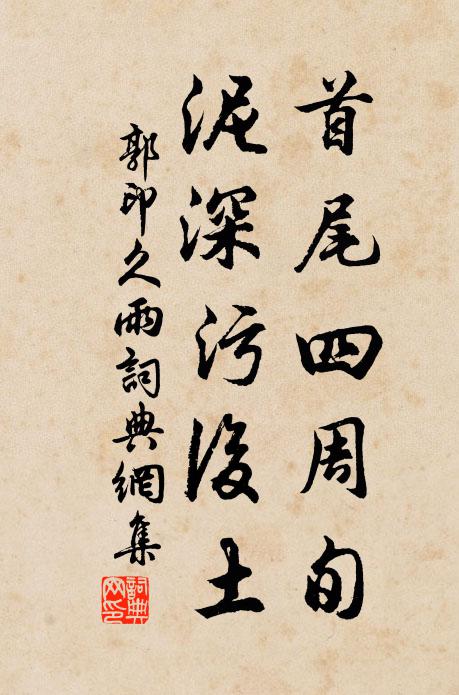 首尾四周旬
泥深污後土
郭印久雨詞典網集
詞典
网印